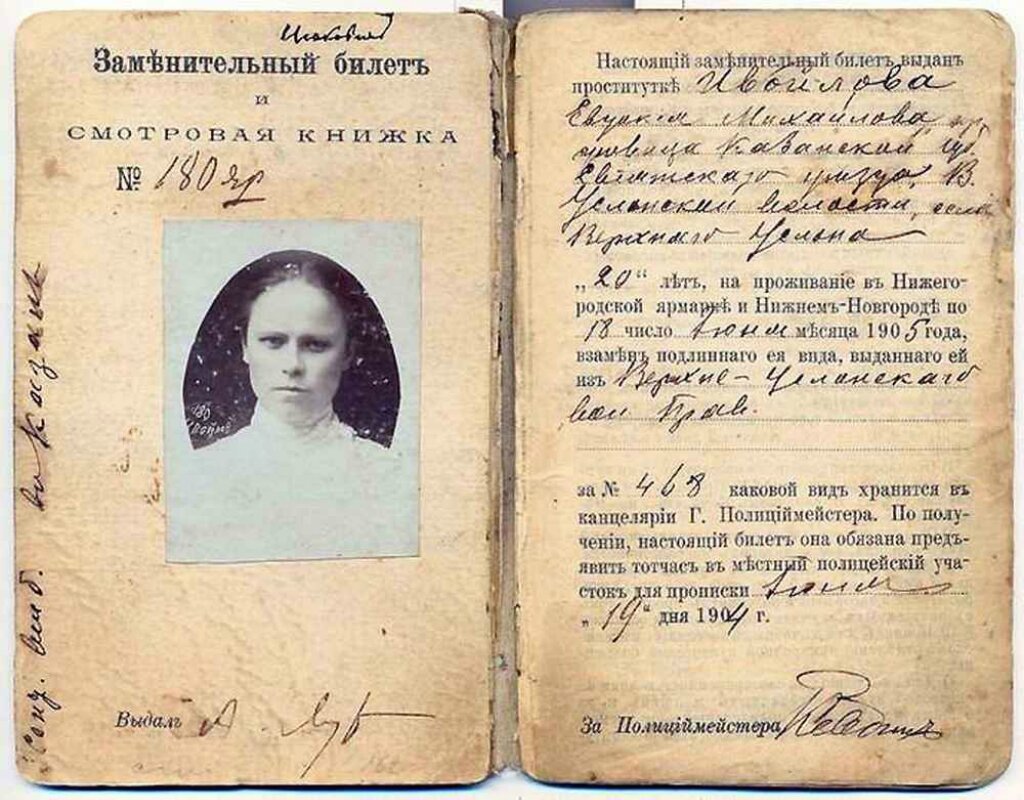 Замѣнительный билетъ
и
СМОТРОВАЯ КНИЖКА
№ 180 яр
180
Выдалъ А.
въ Казань
Настоящій замѣнительный билетъ выданъ
проституткѣ Ивойлова
Михайлова
Казанской губ
уѣзда, В.
Услонской волости, села
Верхняго Услона
„20“ лѣтъ, на проживаніе въ Нижего-
родской ярмаркѣ и Нижнемъ-Новгородѣ по
18 число Іюня мѣсяца 1905 года,
взамѣнъ подлиннаго ея вида, выданнаго ей
изъ Верхне-Услонскаго
вол Прав.
за № 468 каковой видъ хранится въ
канцеляріи Г. Полиціймейстера. По полу-
ченіи, настоящій билетъ она обязана предъ-
явить тотчасъ въ мѣстный полицейскій уча-
стокъ для прописки Іюня
„19“ дня 1904 г.
За Полиціймейстера